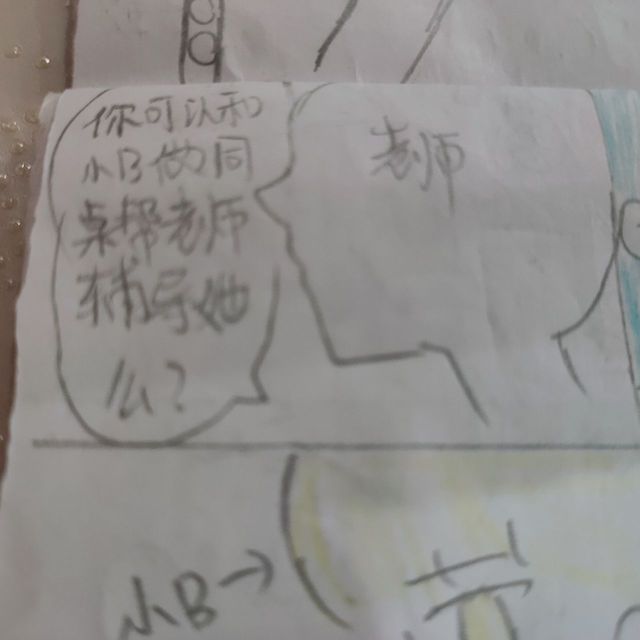 你可认和
小B做同
桌帮老师
辅导她
么?
老师
小B→